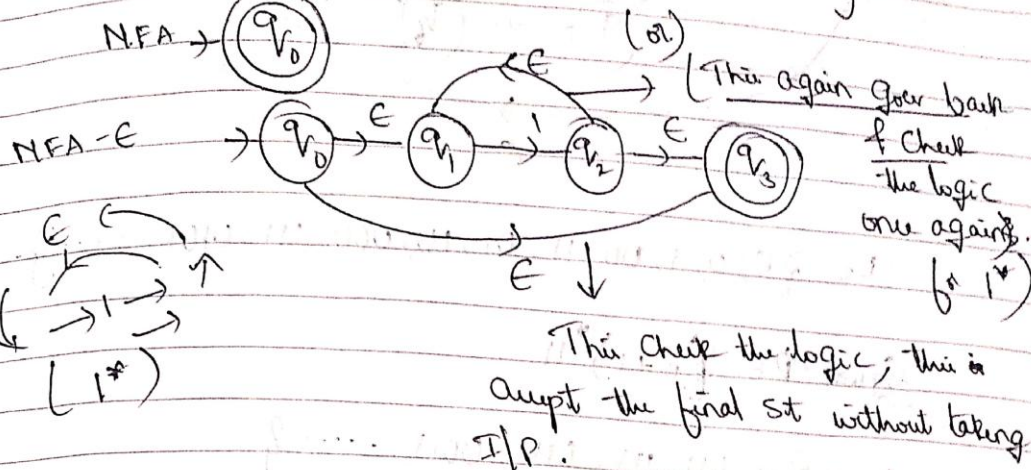 NFA → q0
(or)
NFA-ϵ → q0 ϵ q1 1 q2 ϵ q3
ϵ
(This again goes back
& Check
the logic
once again.
for 1*)
ϵ
ϵ
1
(1*)
This Check the logic, this is
accept the final st without taking
I/P.